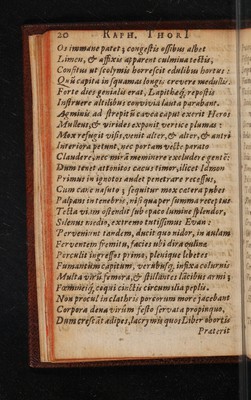 20 RAPH. THORI
Os immane patet; congestis ossibus albet
Limen, & affixis apparent culmina testis,
Consitus ut scolymis horrescit edulibus hortus:
Quũ capita in squamas longis crevere medullis.
Forte dies genialis erat, Lapithæq; repostis
Instruere altilibus convivia lauta parabant.
Agminis ad strepitũ cavea caput exerit Heros
Mullens; & virides exponit vertice plumas:
Mox refugit visis, venit alter, & alter, & antri
Interiora petunt, nec portam vecte parato
Claudere, nec mirã meminere excludere gentẽ:
Dum tenet attonitos cæcus timor, ilicet Admon
Primus in ignotos audet penetrare recessus,
Cum cave nasuto; sequitur mox cætera pubes
Palpans in tenebris, nisi qua per summa receptus
Tecta viam ostendit subpato lumine splendor,
Silenus medio, extremo tutissimus Evan:
Perveniunt tandem, ducit quo nidor, in aulam
Ferventem fremitu, facies ubi dira online
Perculit ingressos primo, plenique lebetes
Fumantium capitum, verubusq; infixa colurnis
Multa virũ femora, & stillantes lacibus armi;
Fœmineiq; coqui cinctis circum ilia peplis.
Non procul in clathris porcorum more jacebant
Corpora dena virûm festo servata propinquo,
Dum crescãt adipes, lacrymis quos Liber obortis
Præterit